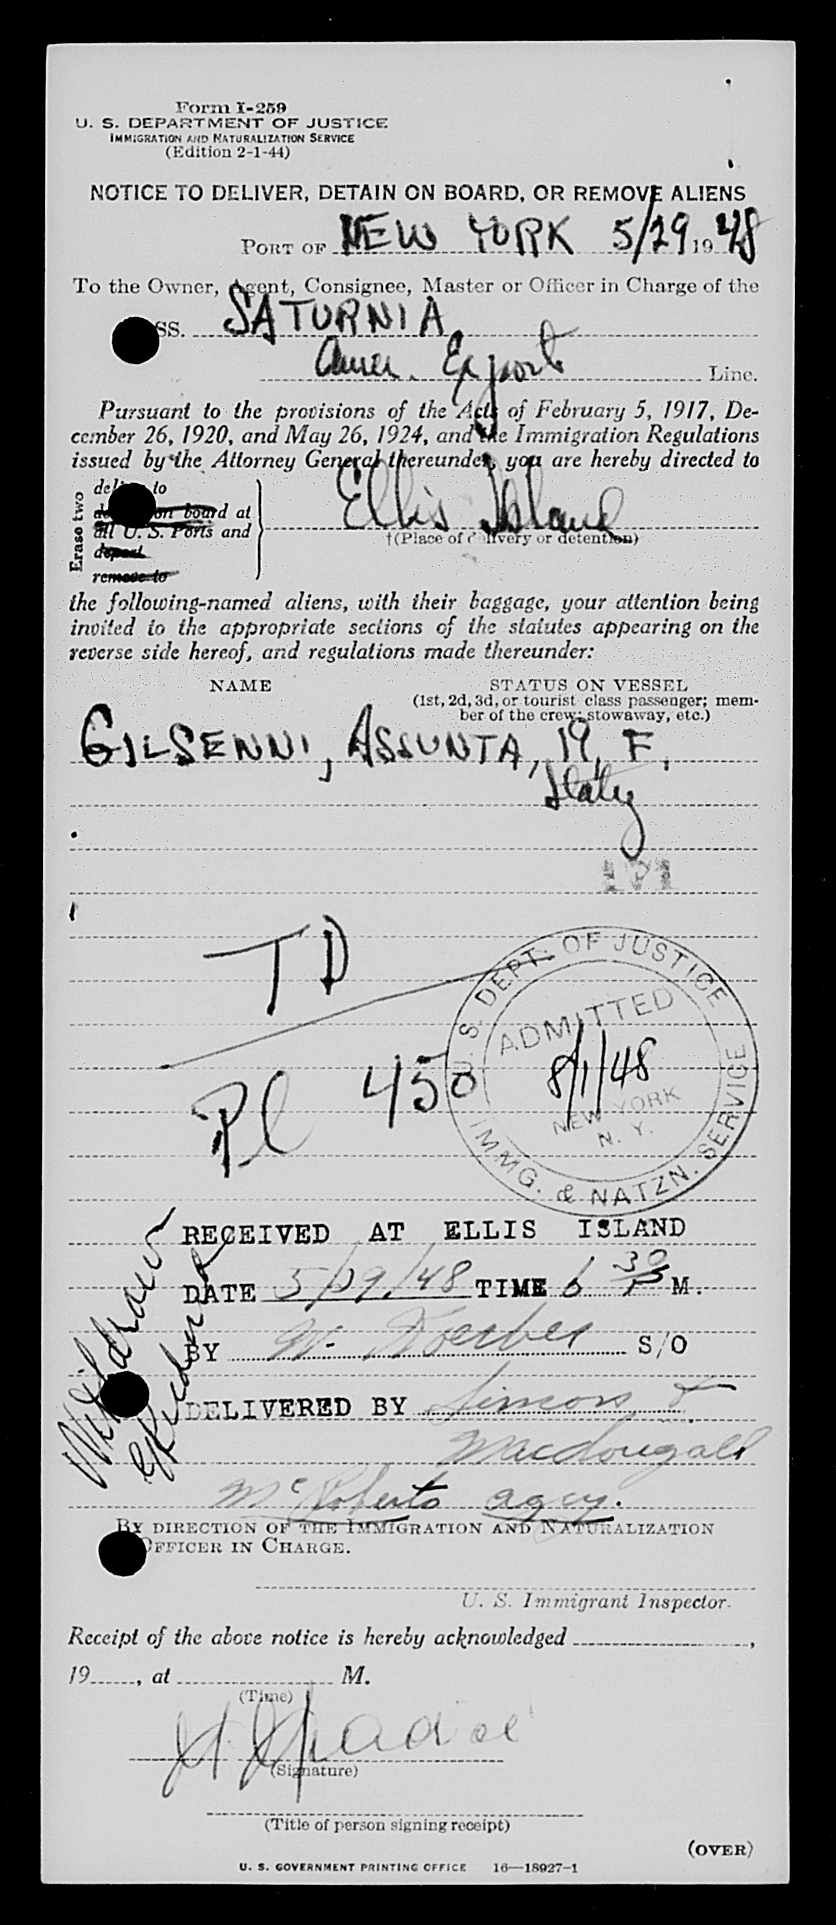 Form I-259
U. S. DEPARTMENT OF JUSTICE
IMMIGRATION AND NATURALIZATION SERVICE
(Edition 2-1-44)
NOTICE TO DELIVER, DETAIN ON BOARD, OR REMOVE ALIENS
PORT OF NEW YORK 5/29 1948
To the Owner, Agent, Consignee, Master or Officer in Charge of the
SS. SATURNIA
Amer. Export Line.
Pursuant to the provisions of the Acts of February 5, 1917, De-
cember 26, 1920, and May 26, 1924, and the Immigration Regulations
issued by the Attorney General thereunder, you are hereby directed to
Erase two
deliver to
on board at
all U. S. Ports and
deport
remove to
Ellis Island
†(Place of delivery or detention)
the following-named aliens, with their baggage, your attention being
invited to the appropriate sections of the statutes appearing on the
reverse side hereof, and regulations made thereunder:
NAME STATUS ON VESSEL
(1st, 2d, 3d, or tourist class passenger; mem-
ber of the crew; stowaway, etc.)
GILSENNI, ASSUNTA, 19, F,
Italy
TD
U. S. DEPT. OF JUSTICE
ADMITTED
8/1/48
NEW YORK
N. Y.
IMMG. & NATZN. SERVICE
450
RECEIVED AT ELLIS ISLAND
DATE 5/29/48 TIME 6 30 P M.
BY W. Koerber S/O
DELIVERED BY Simons &
Macdougall
McRoberts agcy.
BY DIRECTION OF THE IMMIGRATION AND NATURALIZATION
OFFICER IN CHARGE.
U. S. Immigrant Inspector.
Receipt of the above notice is hereby acknowledged ,
19 , at M.
(Time)
(Signature)
(Title of person signing receipt)
(OVER)
U. S. GOVERNMENT PRINTING OFFICE 16—18927-1